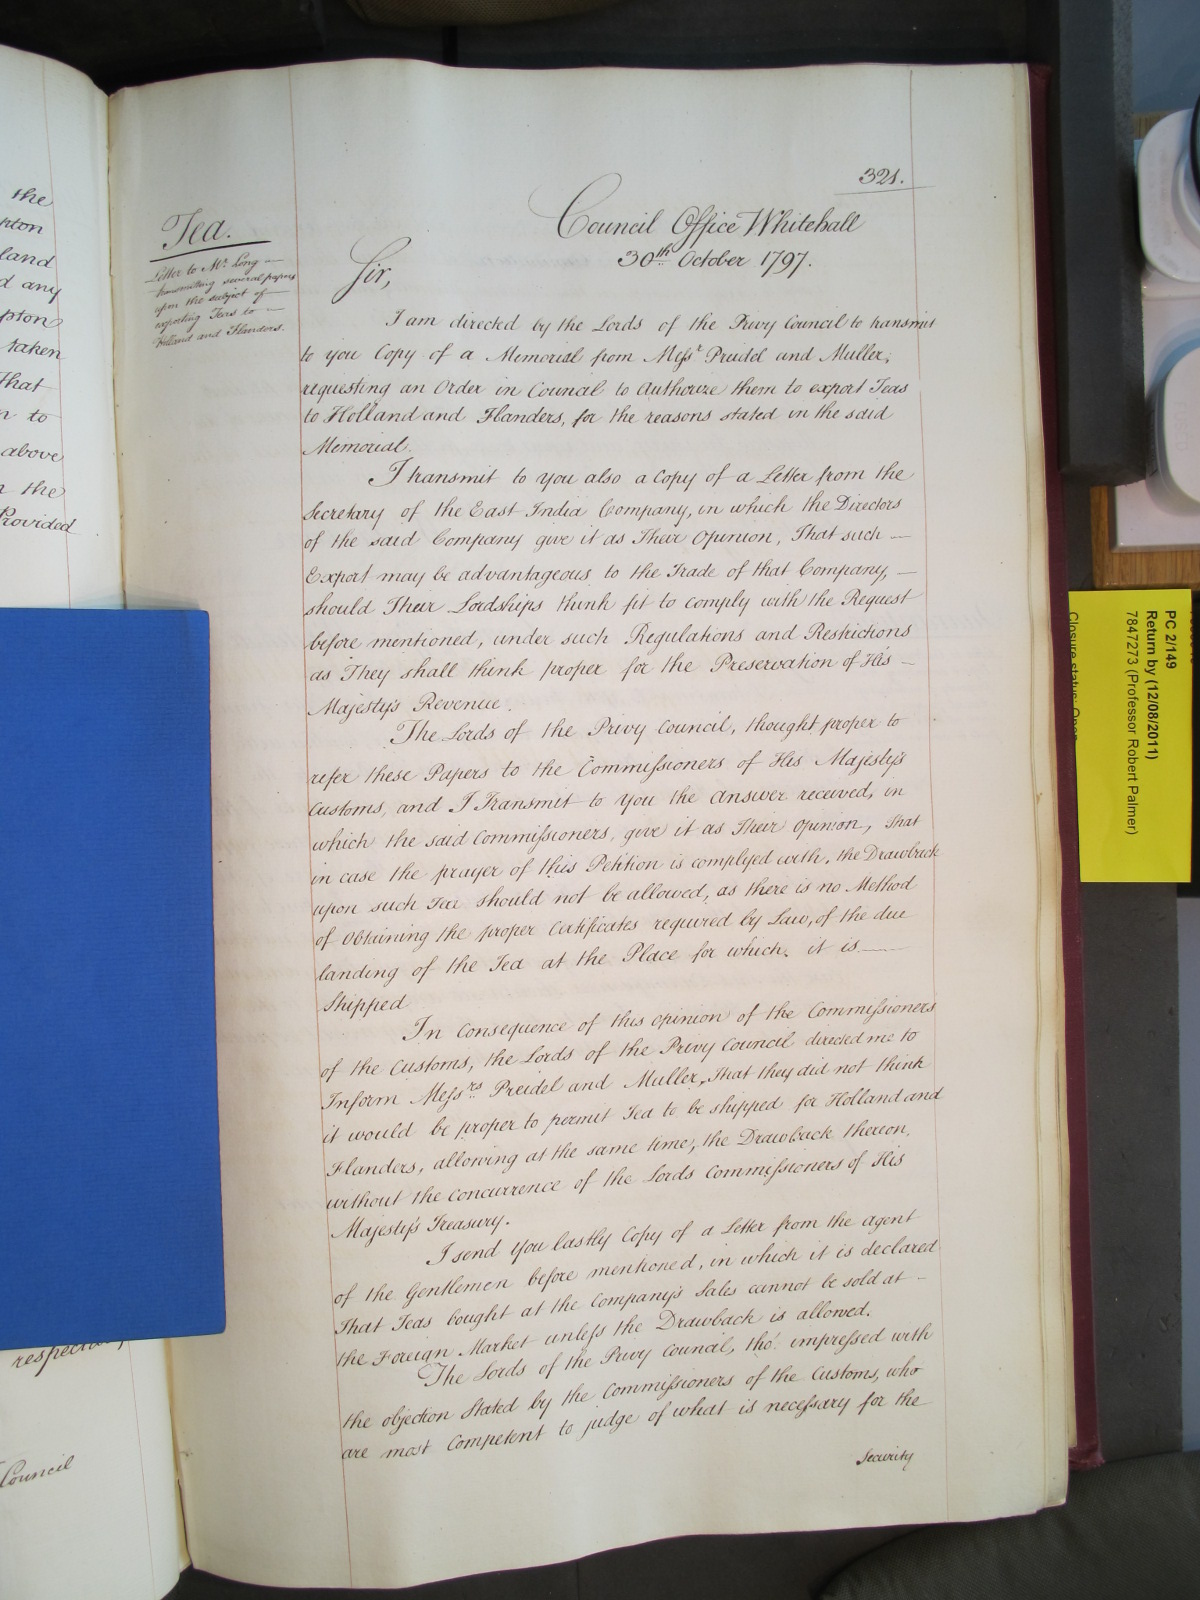 the
pton
land
d any
pton
taken
That
n to
above
n the
Provided
Council
321.
Tea.
Letter to Mr. Long —
transmitting several papers
upon the subject of —
exporting Teas to —
Holland and Flanders.
Council Office Whitehall
30th October 1797.
Sir,
I am directed by the Lords of the Privy Council to transmit
to you Copy of a Memorial from Messrs Preidel and Muller,
requesting an Order in Council to Authorize them to export Teas
to Holland and Flanders, for the reasons stated in the said
Memorial.
I transmit to you also a Copy of a Letter from the
Secretary of the East India Company, in which the Directors
of the said Company give it as Their Opinion, That such —
Export may be advantageous to the Trade of that Company, —
should Their Lordships think fit to comply with the Request
before mentioned, under such Regulations and Restrictions
as They shall think proper for the Preservation of His —
Majesty's Revenue.
The Lords of the Privy Council, thought proper to
refer these Papers to the Commissioners of His Majesty's
Customs, and I Transmit to you the Answer received, in
which the said Commissioners, give it as Their Opinion, that
in case the prayer of this Petition is complyed with, the Drawback
upon such Tea should not be allowed, as there is no Method
of Obtaining the proper Certificates required by Law, of the due
landing of the Tea at the Place for which it is —
Shipped
In Consequence of this opinion of the Commissioners
of the Customs, the Lords of the Privy Council directed me to
Inform Messrs. Preidel and Muller, That they did not think
it would be proper to permit Tea to be shipped for Holland and
Flanders, allowing at the same time, the Drawback thereon,
without the concurrence of the Lords Commissioners of His
Majesty's Treasury.
I send you lastly Copy of a Letter from the agent
of the Gentlemen before mentioned, in which it is declared
That Teas bought at the Company's Sales cannot be sold at —
the Foreign Market unless the Drawback is allowed.
The Lords of the Privy Council, tho' impressed with
the objection stated by the Commissioners of the Customs, who
are most Competent to judge of what is necessary for the
Security
PC 2/149
Return by (12/08/2011)
7847273 (Professor Robert Palmer)
Closure status: Open